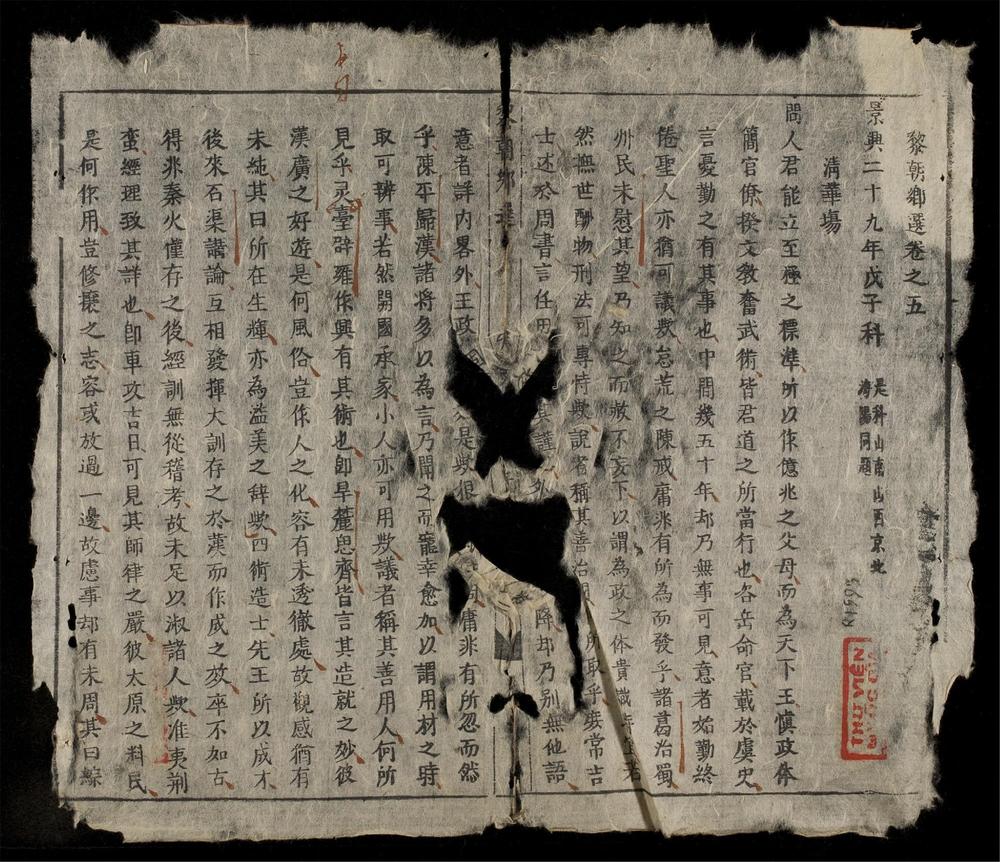 黎朝鄉選卷之五
景興二十九年戊子科 是科山南山西京北
清陽同題
清華塲
問人君能立至極之標準所以作億兆之父母而為天下王慎政体
簡官僚揆文教奮武術皆君道之所當行也咨岳命官載於虞史
言憂勤之有其事也中間幾五十年却乃無事可見意者始勤終
倦聖人亦猶可議歟怠荒之陳戒庸非有所為而發乎諸葛治蜀
州民未慰其望乃知之而赦不妄下以謂為政之体貴識時宜者
然撫世酬物刑法可專恃歟說者稱其善治 所取乎疾常吉
士述於周書言任用 其謹 外 降却乃別無他語
黎朝鄉選
意者詳内畧外王政 是歟很 周庸非有所忽而然
乎陳平歸漢諸將多以為言乃聞之而寵幸愈加以謂用材之時
取可辨事若然開國承家小人亦可用歟議者稱其善用人何所
見乎灵臺辟雍作興有其術也卽旱麓思齊皆言其造就之妙彼
漢廣之好遊是何風俗豈作人之化容有未透徹處故觀感猶有
未純其曰所在生輝亦為溢美之辞歟四術造士先王所以成才
後來石渠講論互相發揮大訓存之於漢而作成之效卒不如古
得非秦火僅存之後經訓無從稽考故未足以淑諸人歟淮夷荆
蛮經理致其詳也卽車攻吉日可見其師律之嚴彼太原之料民
是何作用豈修攘之志容或放過一邊故慮事却有未周其曰綜
R1595
THƯ VIỆN